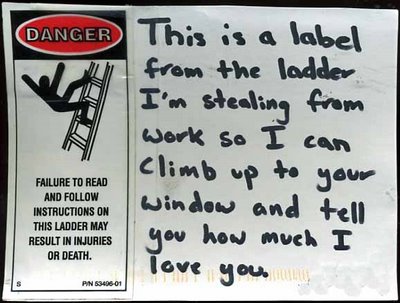 DANGER
FAILURE TO READ
AND FOLLOW
INSTRUCTIONS ON
THIS LADDER MAY
RESULT IN INJURIES
OR DEATH.
S P/N 53496-01
This is a label
from the ladder
I'm stealing from
work so I can
Climb up to your
window and tell
you how much I
love you.